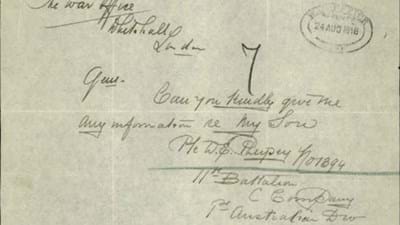 The War Office
Whitehall
London
24 AUG 1918
7
Gen.
Can you kindly give me
any information re My Son
Pte W. E. 1894
11th Battalion
C Company
1st Australian Div